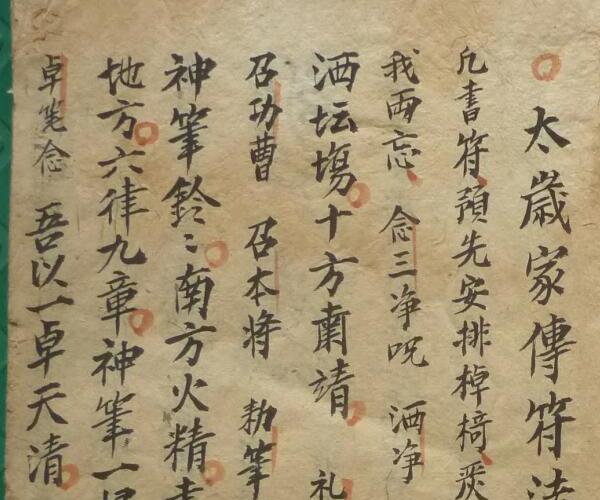 太歲家傳符法
凡書符預先安排棹椅
我両忘 念三净呪 洒净
洒坛塲十方肅靖 礼
召功曹 召本将 勅筆
神筆鈴〻南方火精
地方六律九章神筆一
卓笔念 吾以一卓天清